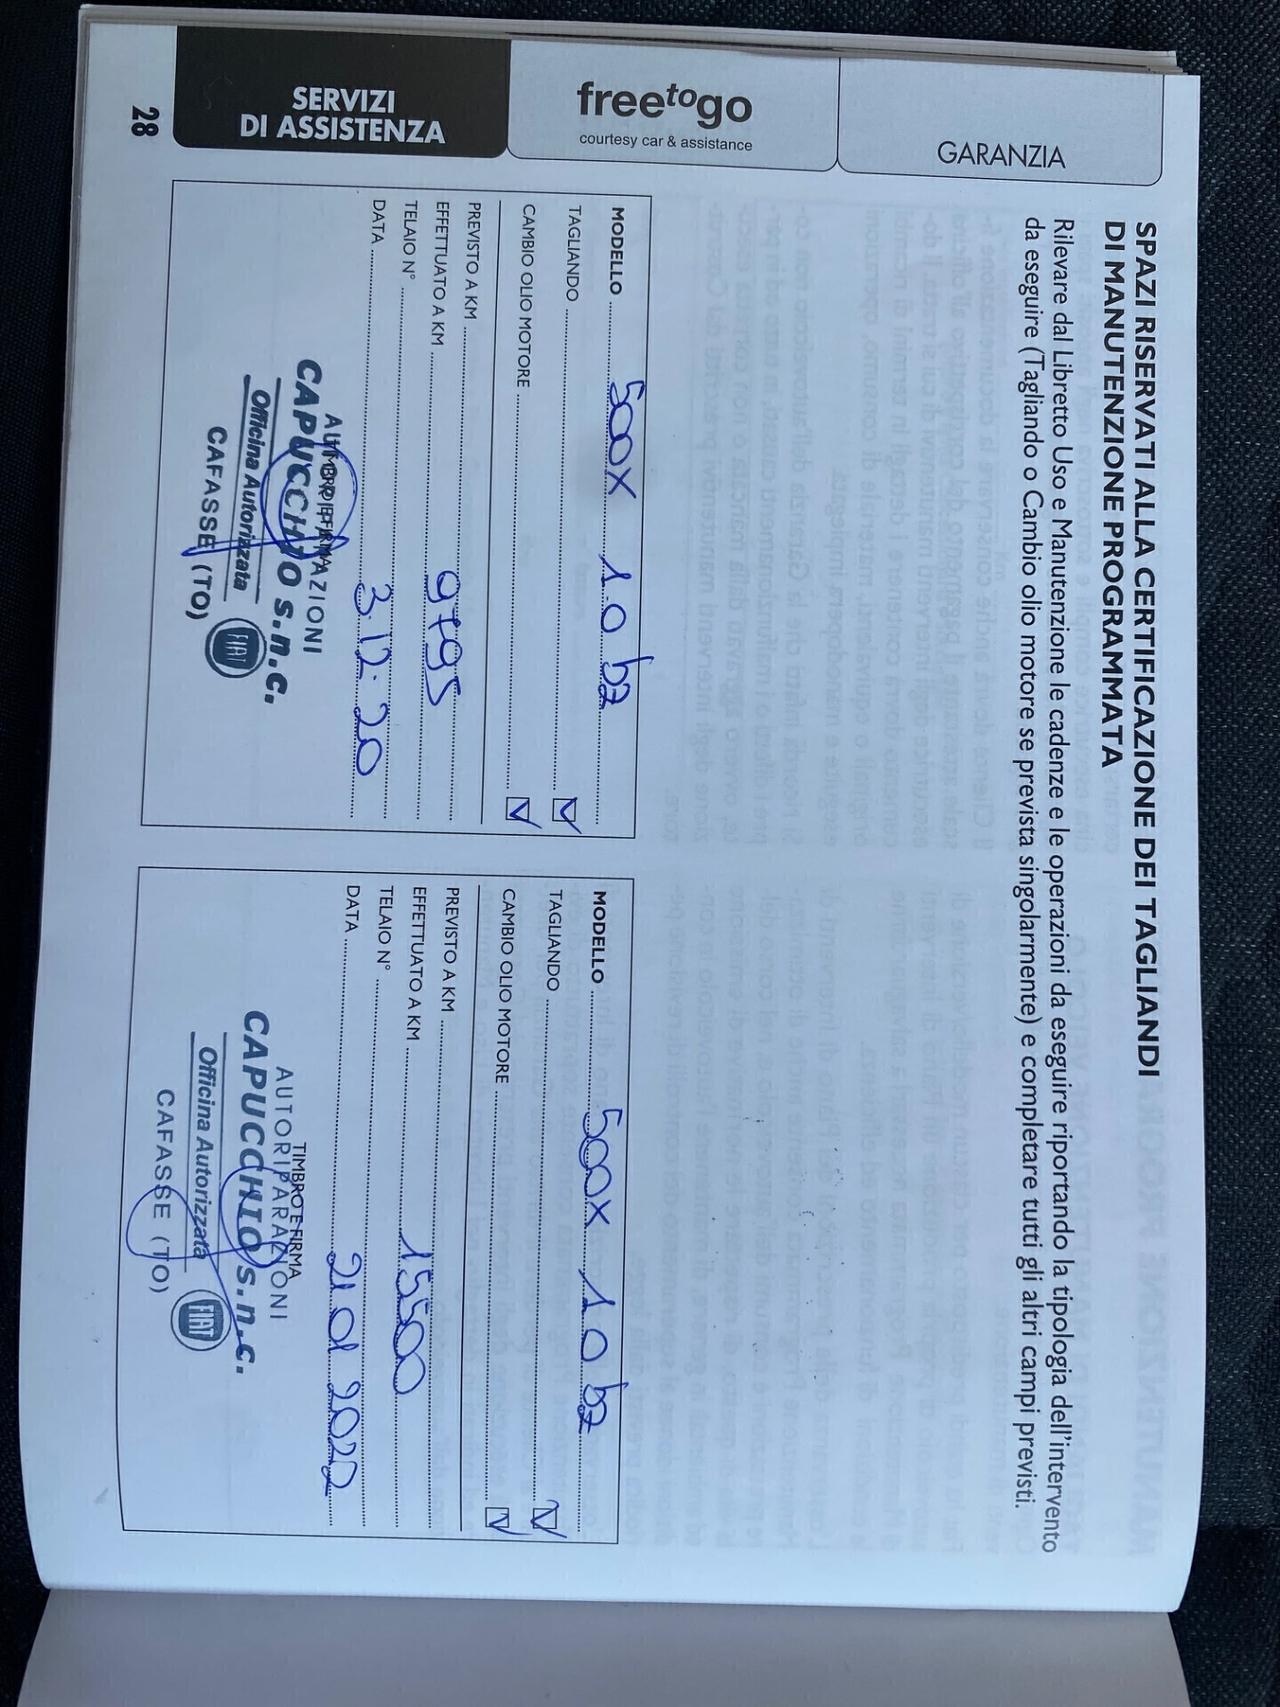 GARANZIA
freetogo
courtesy car & assistance
SERVIZI
DI ASSISTENZA
28
SPAZI RISERVATI ALLA CERTIFICAZIONE DEI TAGLIANDI
DI MANUTENZIONE PROGRAMMATA
Rilevare dal Libretto Uso e Manutenzione le cadenze e le operazioni da eseguire riportando la tipologia dell'intervento
da eseguire (Tagliando o Cambio olio motore se prevista singolarmente) e completare tutti gli altri campi previsti.
MODELLO 500X 1.0 bz
TAGLIANDO
CAMBIO OLIO MOTORE
PREVISTO A KM
EFFETTUATO A KM 9795
TELAIO N°
DATA 3.12.20
TIMBRO E FIRMA
AUTORIPARAZIONI
CAPUCCHIO s.n.c.
Officina Autorizzata
CAFASSE (TO)
FIAT
MODELLO 500X 1.0 bz
TAGLIANDO
CAMBIO OLIO MOTORE
PREVISTO A KM
EFFETTUATO A KM 15500
TELAIO N°
DATA 21 01 2022
TIMBRO E FIRMA
AUTORIPARAZIONI
CAPUCCHIO s.n.c.
Officina Autorizzata
CAFASSE (TO)
FIAT